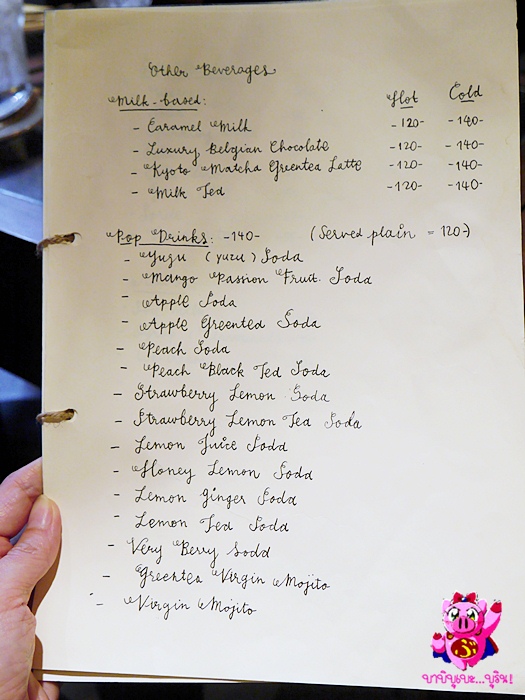 Other Beverages
Milk-based: Hot Cold
- Caramel Milk -120- -140-
- Luxury Belgian Chocolate -120- -140-
- Kyoto Matcha Greentea Latte -120- -140-
- Milk Tea -120- -140-
Pop Drinks: -140- (Served plain = 120-)
- Yuzu (yuzu) Soda
- Mango Passion Fruit Soda
- Apple Soda
- Apple Greentea Soda
- Peach Soda
- Peach Black Tea Soda
- Strawberry Lemon Soda
- Strawberry Lemon Tea Soda
- Lemon Juice Soda
- Honey Lemon Soda
- Lemon Ginger Soda
- Lemon Tea Soda
- Very Berry Soda
- Greentea Virgin Mojito
- Virgin Mojito